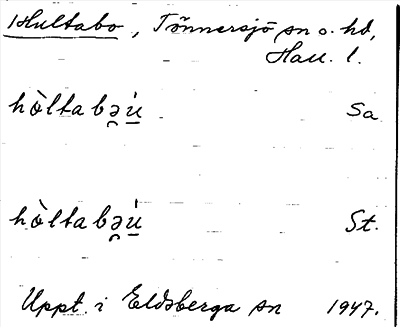 Hultabo, Tönnersjö sn o. hd,
Hall. l.
hòltabə̯u̱̇ Sa
hòltabə̯u̱̇ St.
Uppt. i Eldsberga sn 1947.